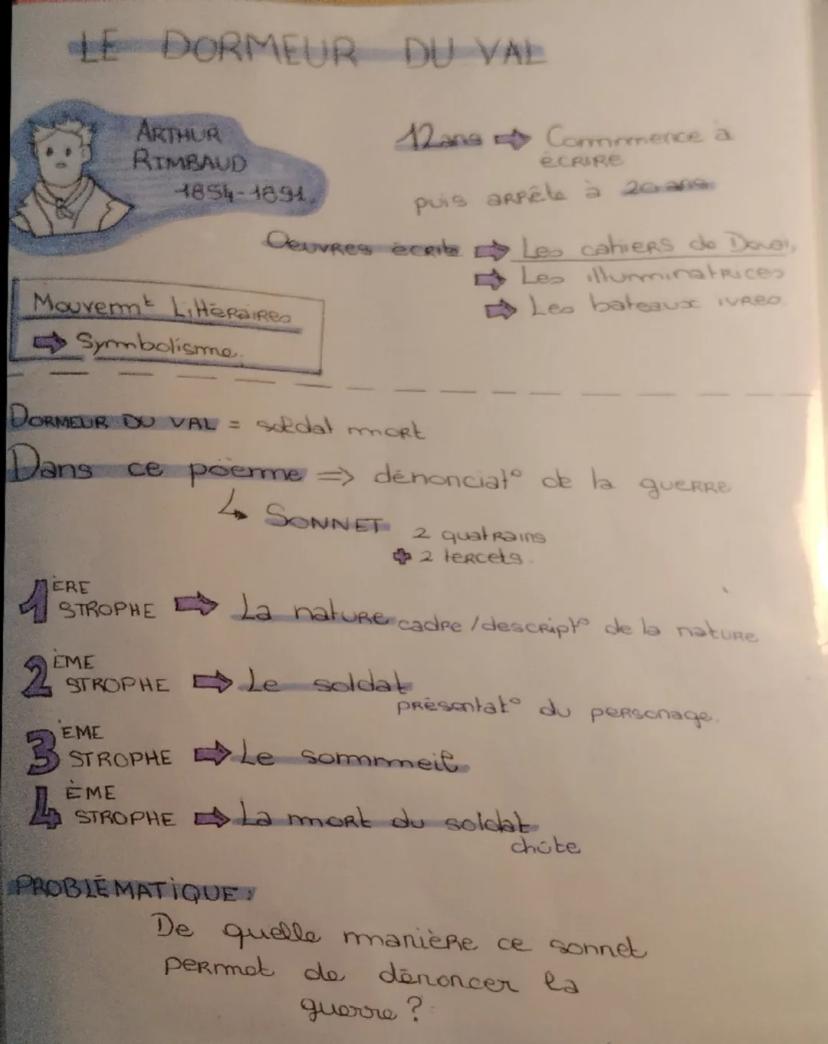 LE DORMEUR DU VAL
ARTHUR
RIMBAUD
1854-1891.
12 ans ⇨ Commence à
ÉCRIRE
puis arrête à 20 ans
Oeuvres écrite ⇨ Les cahiers de Douai,
⇨ Les illuminatrices
⇨ Les bateaux ivres.
Mouvemt Littéraires
⇨ Symbolisme.
DORMEUR DU VAL = soldat mort
Dans ce poème => dénonciat° de la guerre
↳ SONNET 2 quatrains
+ 2 tercets.
1ÈRE STROPHE ⇨ La nature cadre/descript° de la nature
2ÈME STROPHE ⇨ Le soldat
présentat° du personage.
3ÈME STROPHE ⇨ Le sommeil
4ÈME STROPHE ⇨ La mort du soldat
chûte
PROBLÉMATIQUE:
De quelle manière ce sonnet
permet de dénoncer la
guerre ?